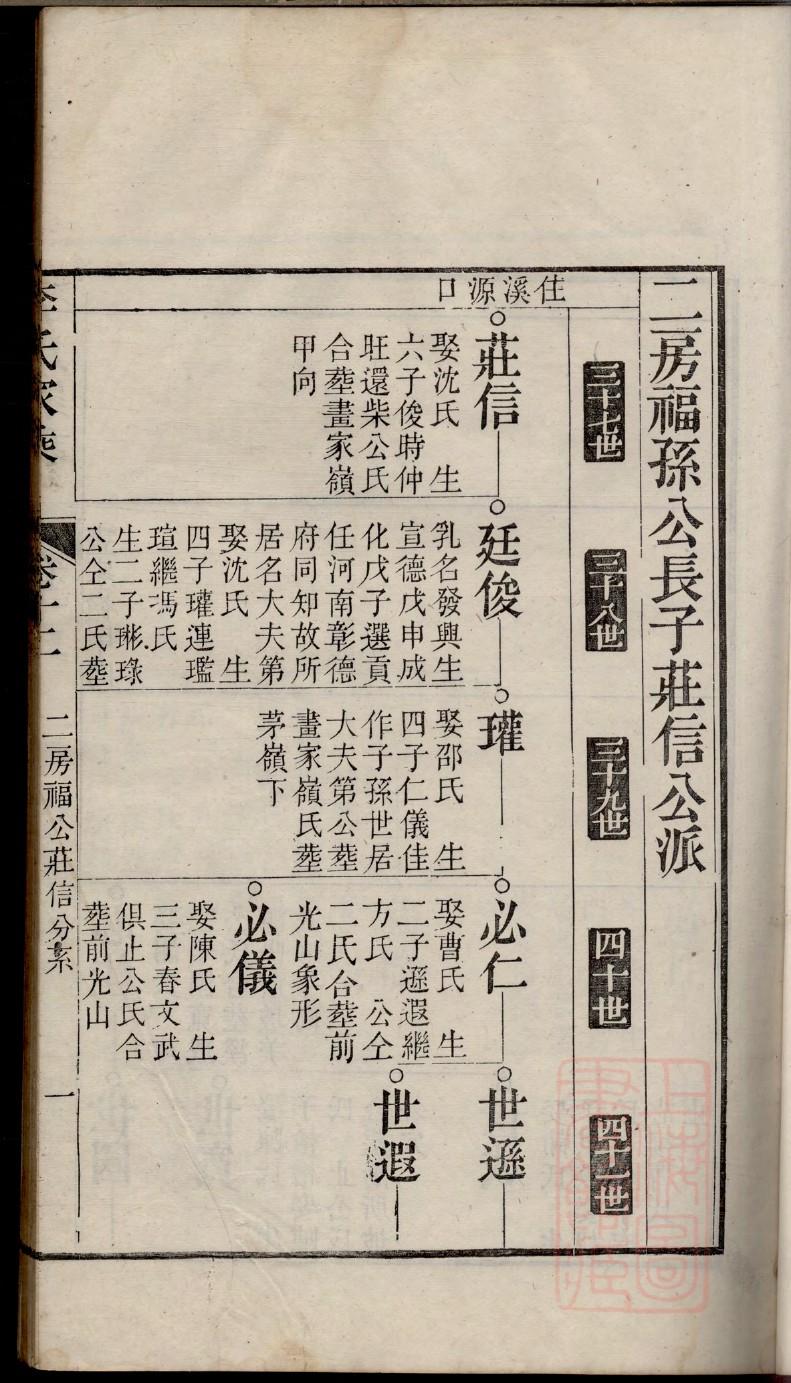 二房福孫公長子莊信公派
三十七世
三十八世
三十九世
四十世
四十一世
住溪源口
莊信
娶沈氏 生
六子俊時仲
旺還柴公氏
合塟畫家嶺
甲向
廷俊
乳名發興生
宣德戊申成
化戊子選貢
任河南彰德
府同知故所
居名大夫第
娶沈氏 生
四子瓘連瓛
瑄繼馮氏
生二子琳琭
公仝二氏塟
瓘
娶邵氏 生
四子仁儀佳
作子孫世居
大夫第公塟
畫家嶺氏塟
茅嶺下
必仁
娶曹氏 生
二子遜遐繼
方氏 公仝
二氏合塟前
光山象形
必儀
娶陳氏 生
三子春文武
俱止公氏合
塟前光山
世遜
世遐
李氏家乘
卷十二
二房福公莊信分系
一